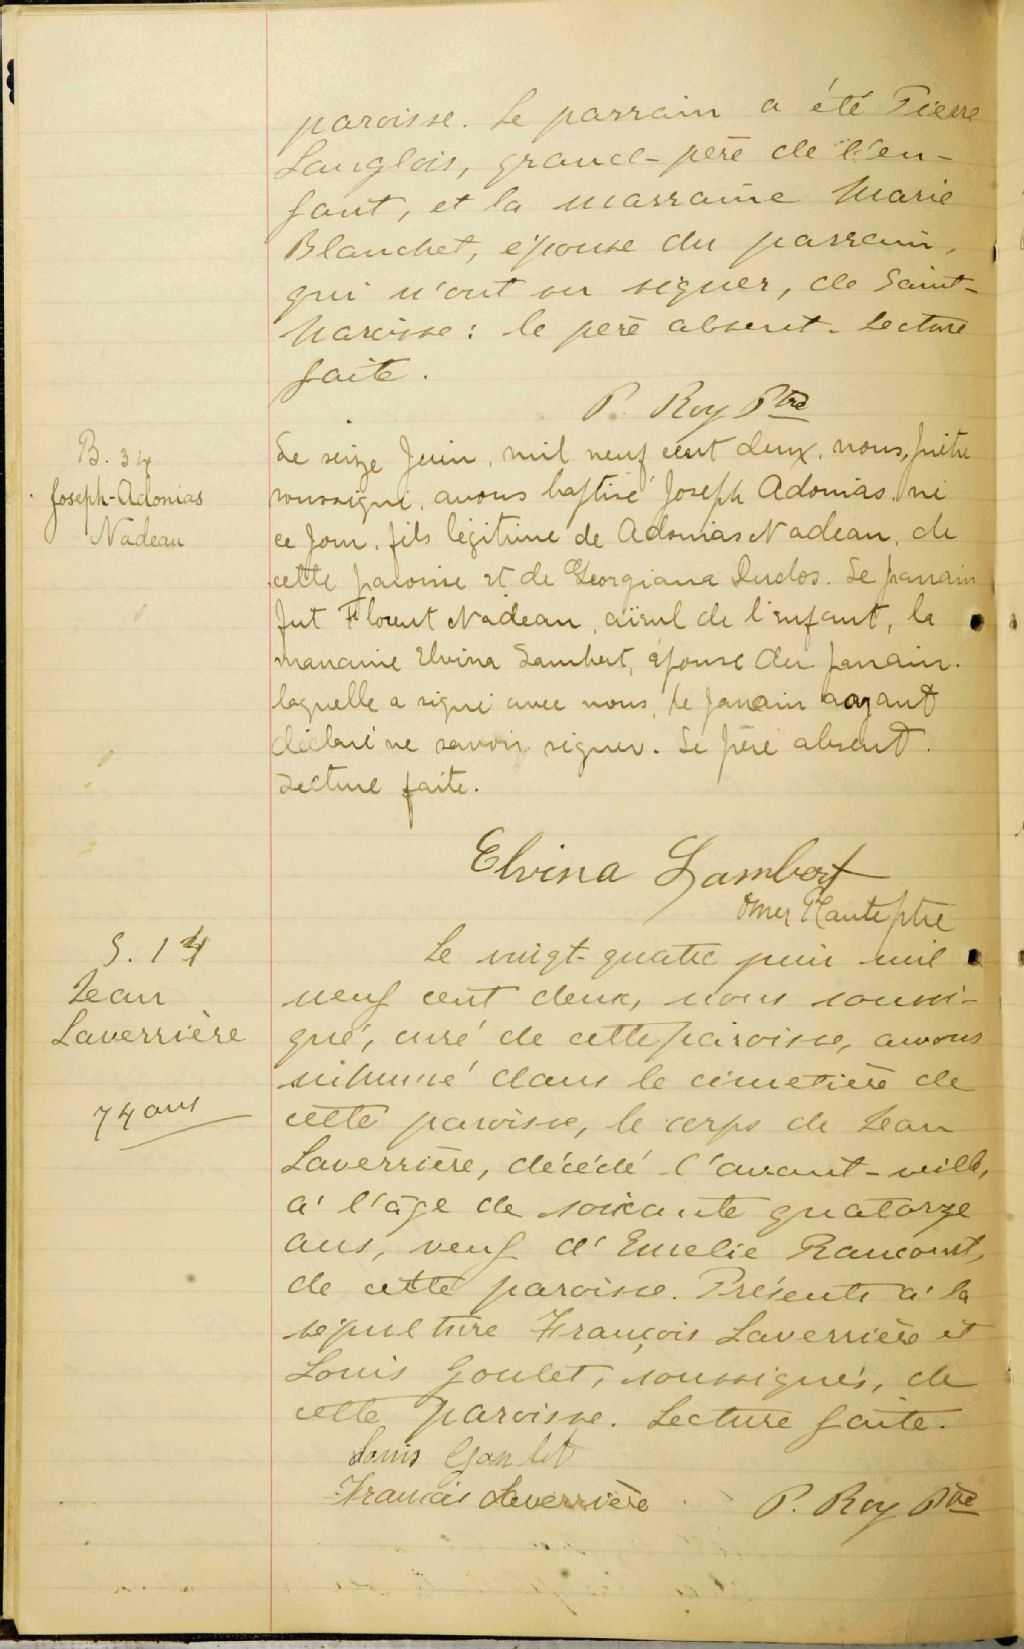 paroisse. Le parrain a été Pierre
Langlois, grand-père de l'en-
fant, et la marraine Marie
Blanchet, épouse du parrain,
qui n'ont su signer, de Saint-
Narcisse : le père absent. Lecture
faite.
P. Roy Ptre
B. 34
Joseph-Adonias
Nadeau
Le seize Juin, mil neuf cent deux, nous, prêtre
soussigné, avons baptisé Joseph Adonias, né
ce jour, fils légitime de Adonias Nadeau, de
cette paroisse et de Georgiana Duclos. Le parrain
fut Florent Nadeau, aïeul de l'enfant, la
marraine Elvina Lambert, épouse du parrain.
laquelle a signé avec nous, le parrain ayant
déclaré ne savoir signer. Le père absent.
Lecture faite.
Elvina Lambert
Omer Plante ptre
S. 14
Jean
Laverrière
74 ans
Le vingt-quatre juin mil
neuf cent deux, nous soussi-
gné, curé de cette paroisse, avons
inhumé dans le cimetière de
cette paroisse, le corps de Jean
Laverrière, décédé l'avant-veille,
à l'âge de soixante quatorze
ans, veuf d'Emelie Rancourt,
de cette paroisse. Présents à la
sépulture François Laverrière et
Louis Goulet, soussignés, de
cette paroisse. Lecture faite.
Louis Goulet
Francois Laverrière
P. Roy Ptre